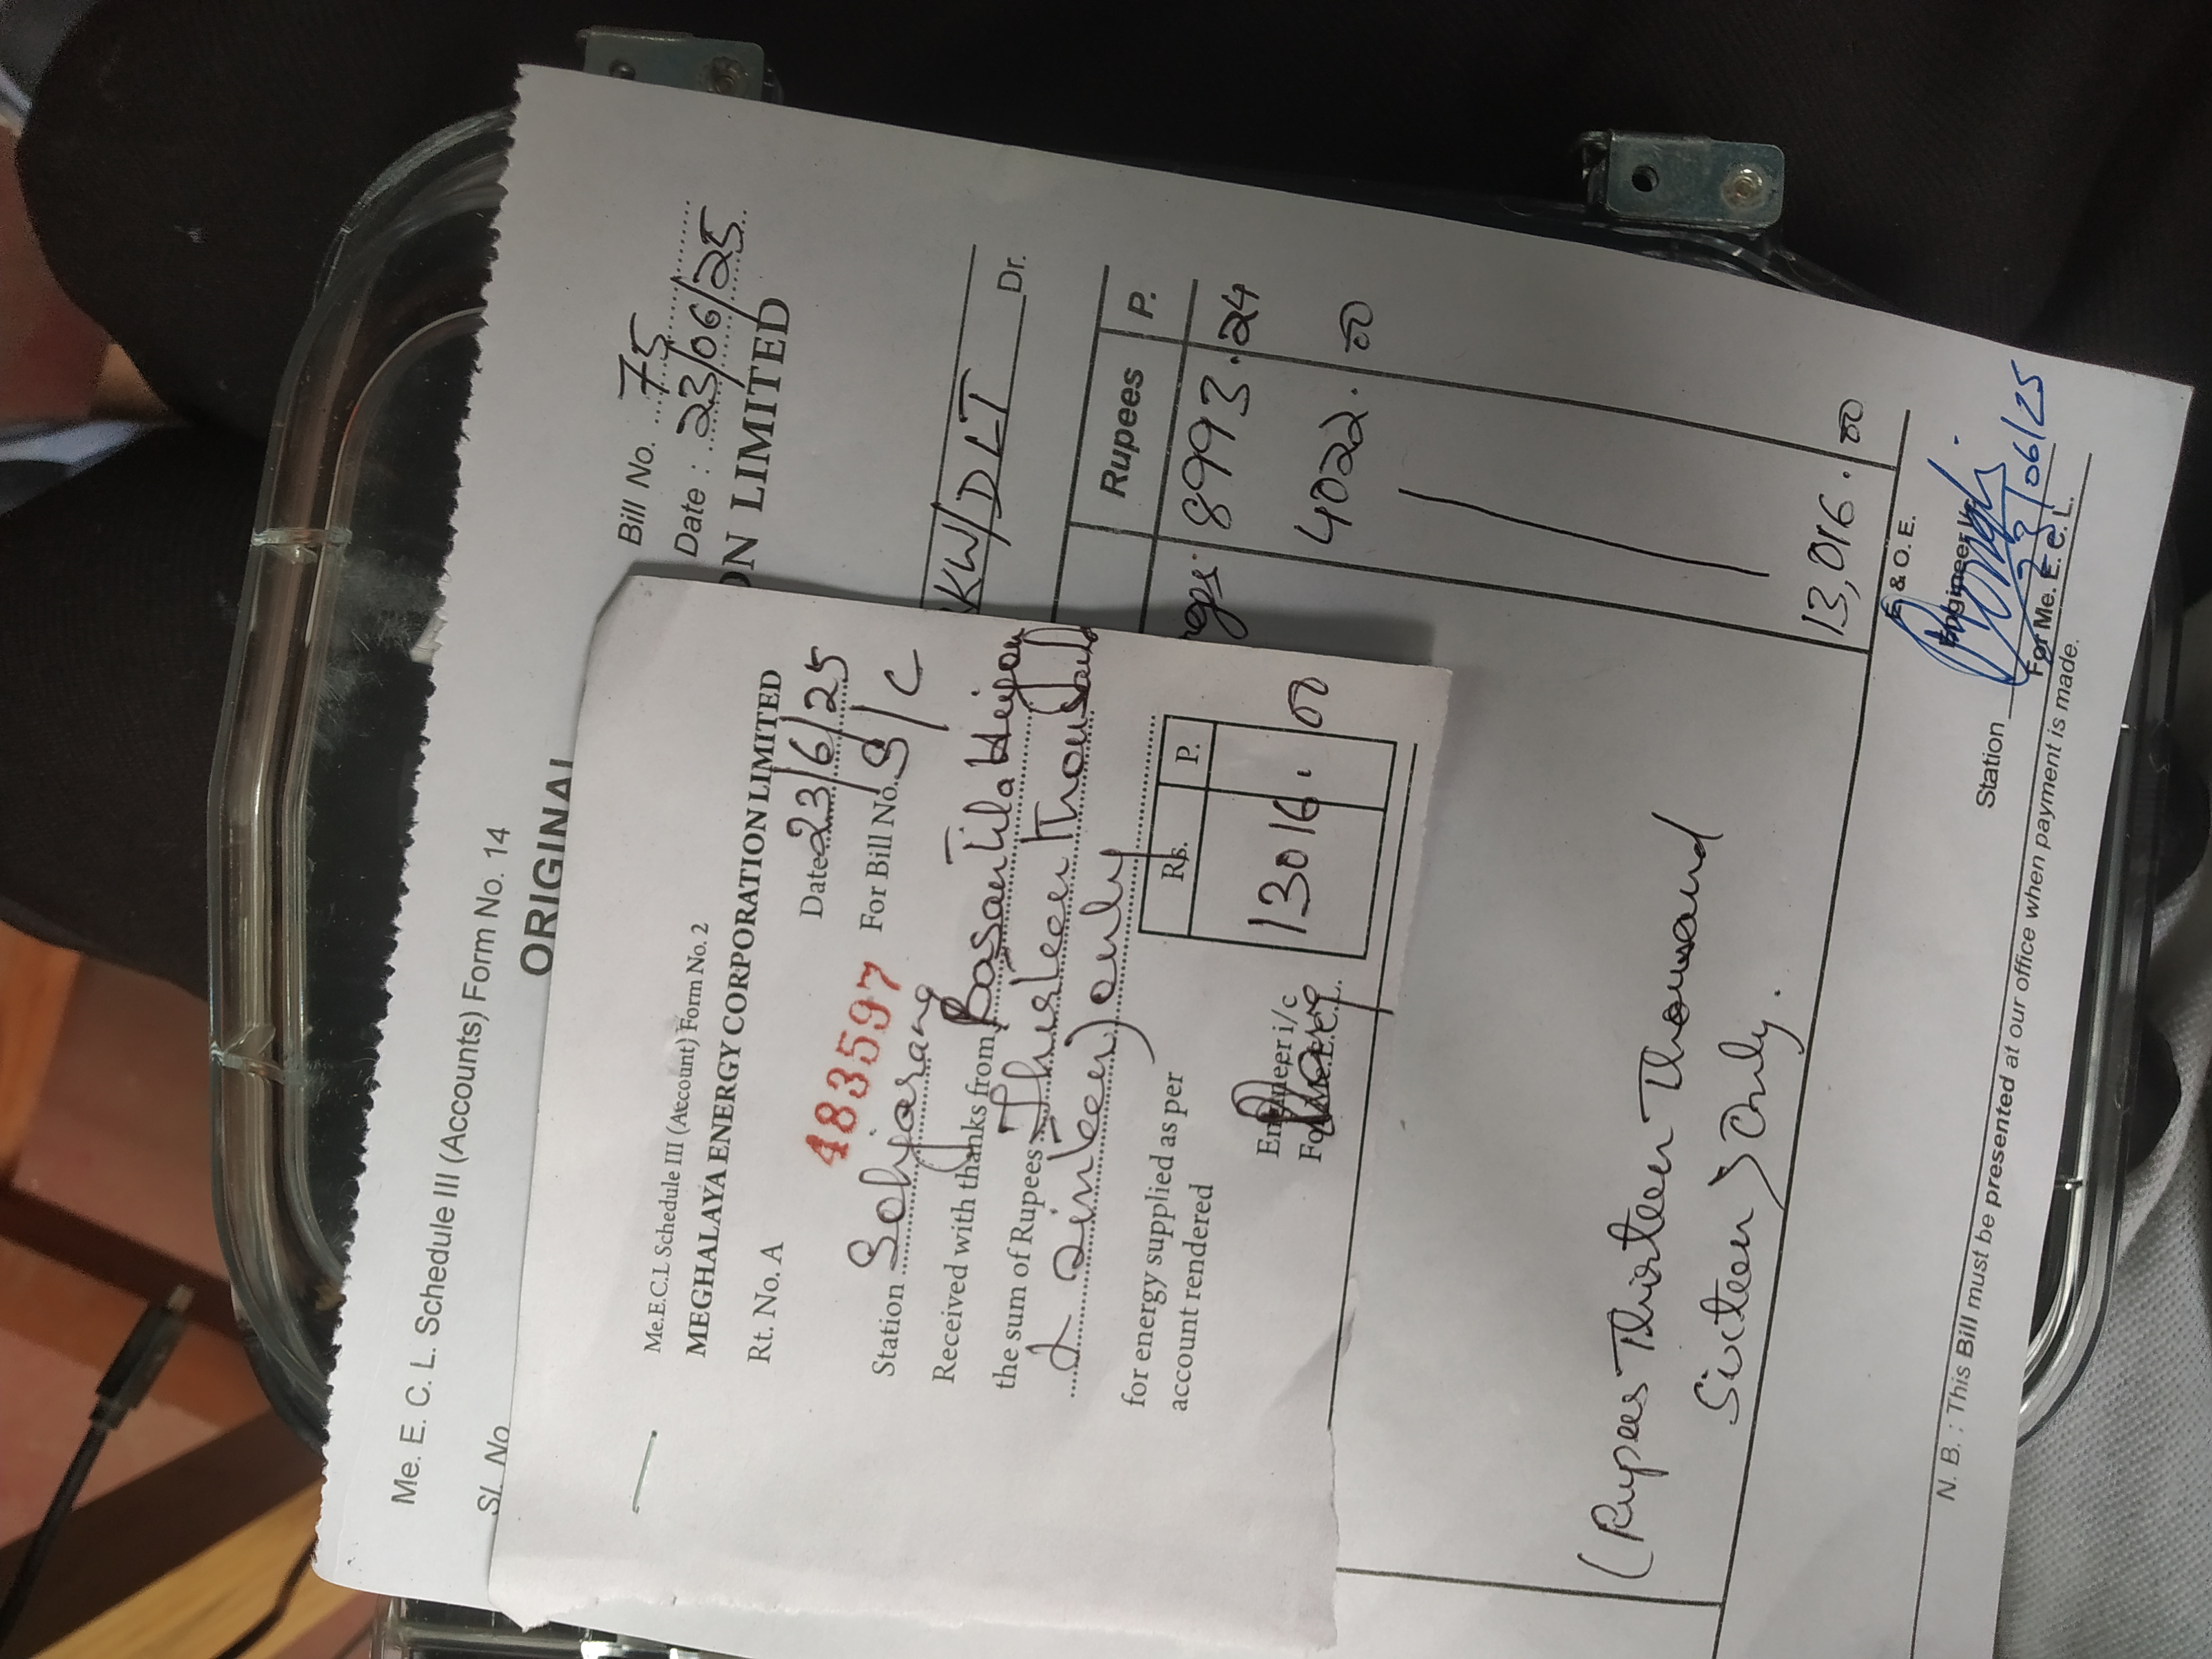 Me. E. C. L. Schedule III (Accounts) Form No. 14
ORIGINAL
Sl. No
Bill No. 75
Date : 23/06/25
ON LIMITED
KW/DLT
Dr.
Rupees P.
8993.24
4022.00
13,016.00
(Rupees Thirteen Thousand
Sixteen) Only.
E & O. E.
Engineer i/c
23/06/25
Station
For Me. E. C. L.
N. B. : This Bill must be presented at our office when payment is made.
Me.E.C.L Schedule III (Account) Form No. 2
MEGHALAYA ENERGY CORPORATION LIMITED
Rt. No. A
483597
Date 23/6/25
Station Sohiorang For Bill No. S/C
Received with thanks from
the sum of Rupees Thirteen Thousand
& sixteen) only
for energy supplied as per
account rendered
Rs. P.
13016.00
Engineer i/c
For Me.E.C.L.